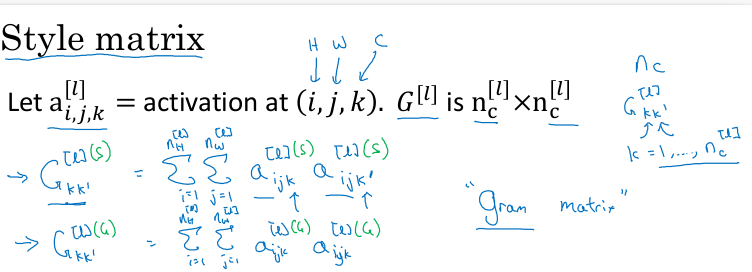 Style matrix
H W C
Let a^{[l]}_{i,j,k} = activation at (i, j, k). G^{[l]} is n_c^{[l]}×n_c^{[l]}
n_c
G^{[l]}_{kk'}
k = 1, ..., n_c^{[l]}
→ G^{[l](S)}_{kk'} = Σ_{i=1}^{n_H^{[l]}} Σ_{j=1}^{n_W^{[l]}} a^{[l](S)}_{ijk} a^{[l](S)}_{ijk'}
"Gram matrix"
→ G^{[l](G)}_{kk'} = Σ_{i=1}^{n_H^{[l]}} Σ_{j=1}^{n_W^{[l]}} a^{[l](G)}_{ijk} a^{[l](G)}_{ijk}